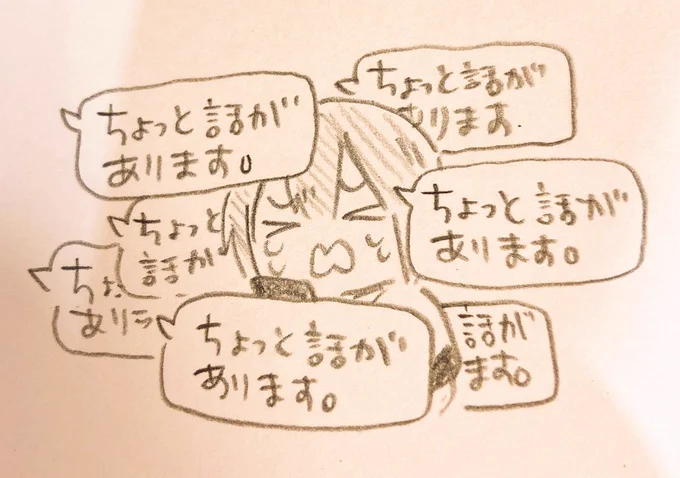 ちょっと話が
あります。
ちょっと話が
あります.
ちょっと話が
あります。
ちょっと
話が
ち
あり
ちょっと話が
あります。
話が
ます。